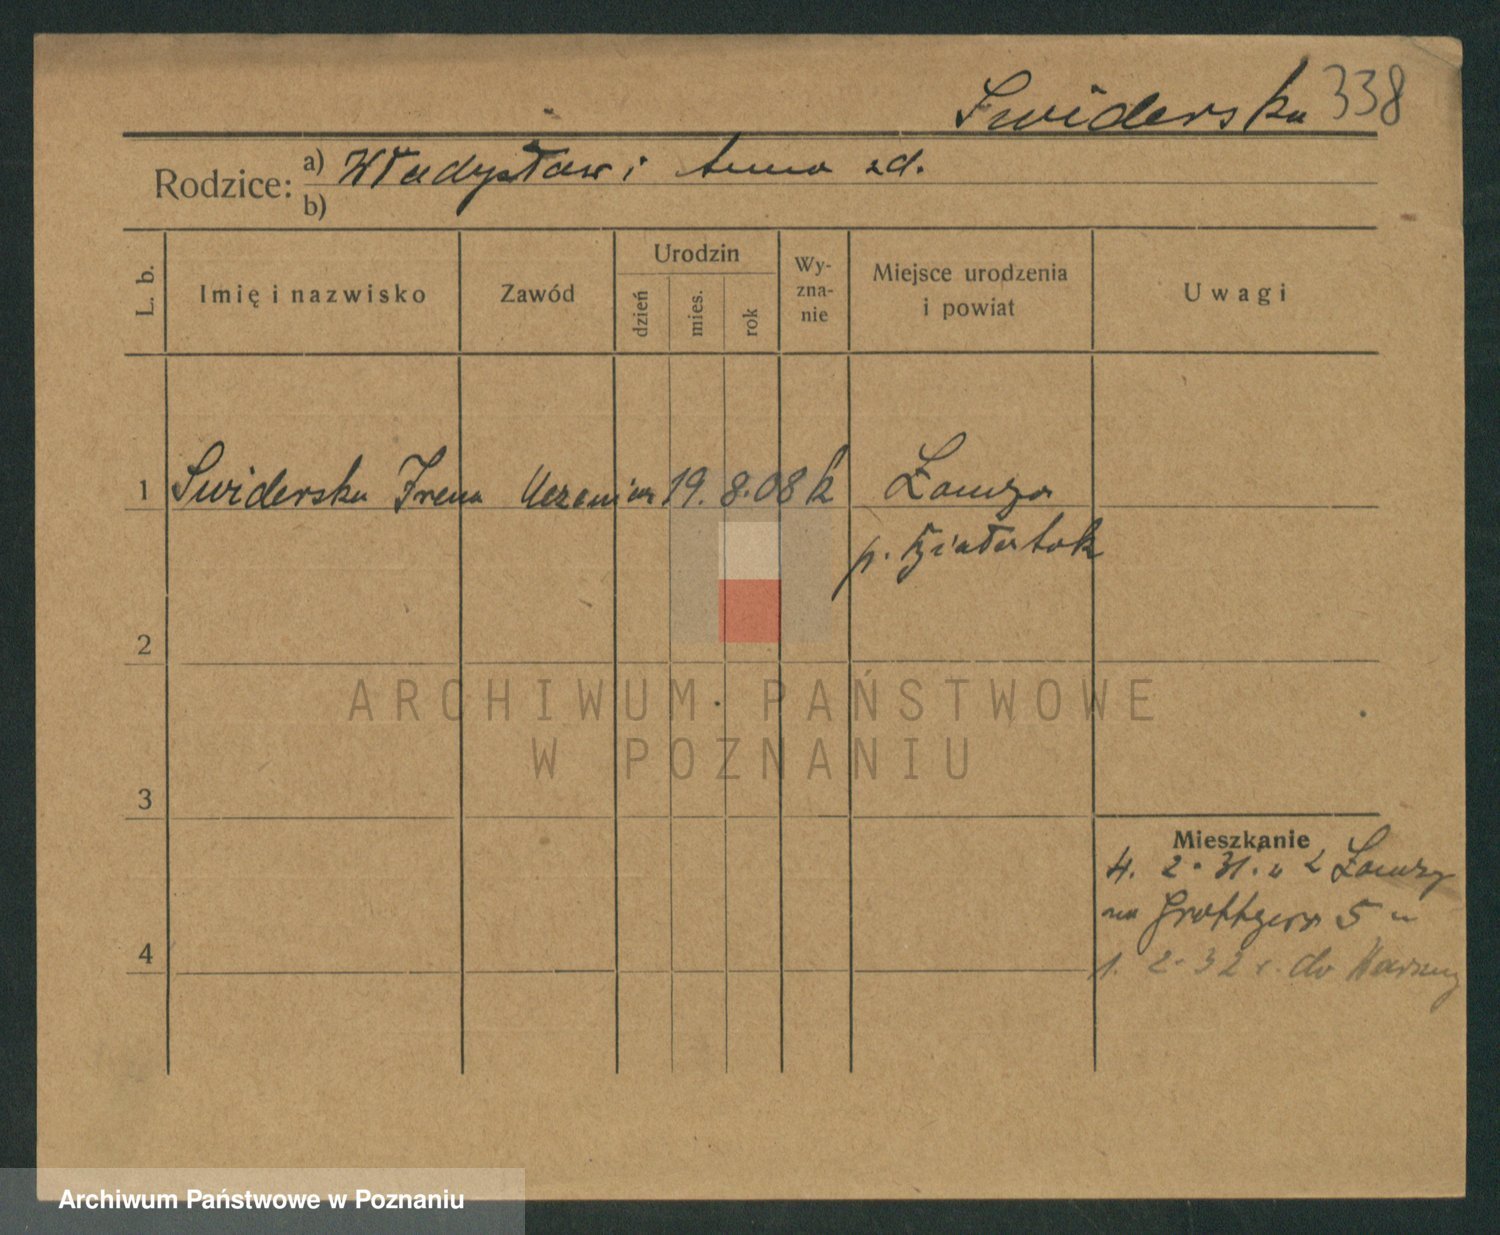 Swiderska 338
Rodzice: a) Władysław i Anna zd.
b)
L. b.
Imię i nazwisko
Zawód
Urodzin
dzień
mies.
rok
Wy-
zna-
nie
Miejsce urodzenia
i powiat
Uwagi
1 Swiderska Irena 19. 8. 08 k Łomża
p. Białystok
2
ARCHIWUM PAŃSTWOWE
W POZNANIU
3
Mieszkanie
4. 2. 31. z Łomży
na Grottgera 5
4
1. 2. 32 r. do Warszawy
Archiwum Państwowe w Poznaniu